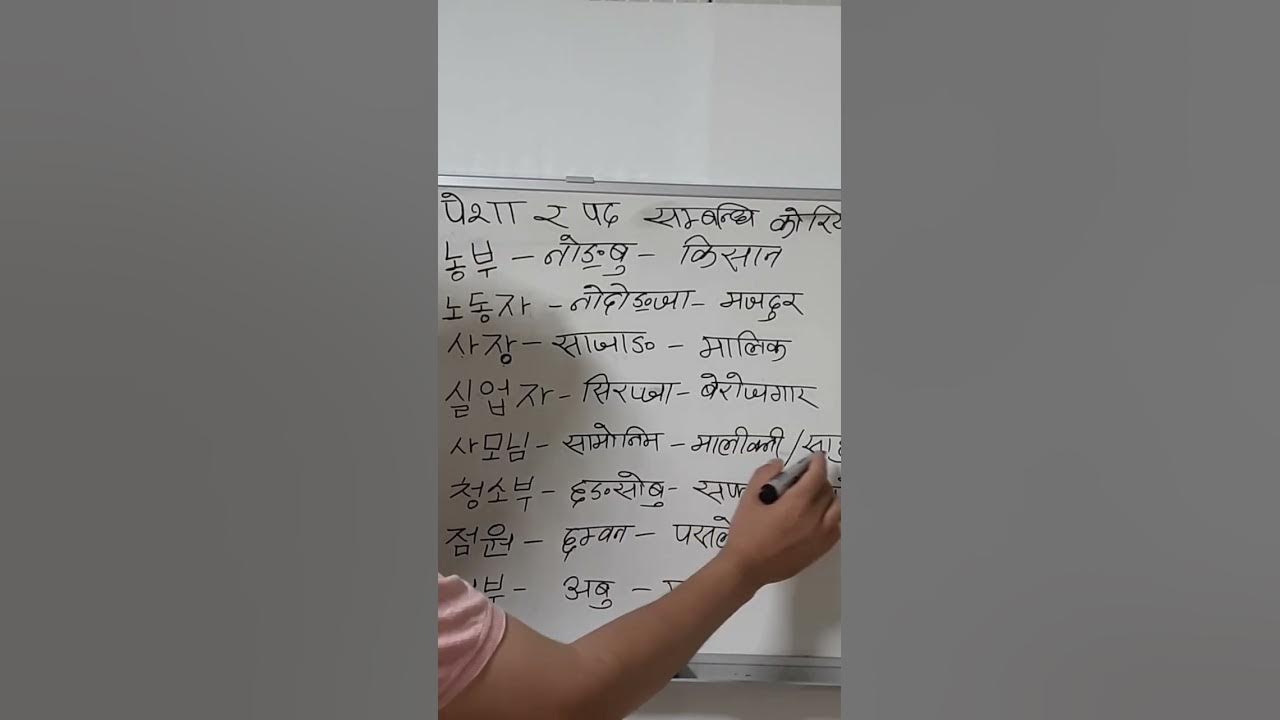 पेशा र पद सम्बन्धि
농부 - नोङबु - किसान
노동자 - नोदोङजा - मजदुर
사장 - साजाङ - मालिक
실업자 - सिरप्जा - बेरोजगार
사모님 - सामोनिम - मालीक्नी /
청소부 - छङसोबु -
점원 - छमवन -
अबु -